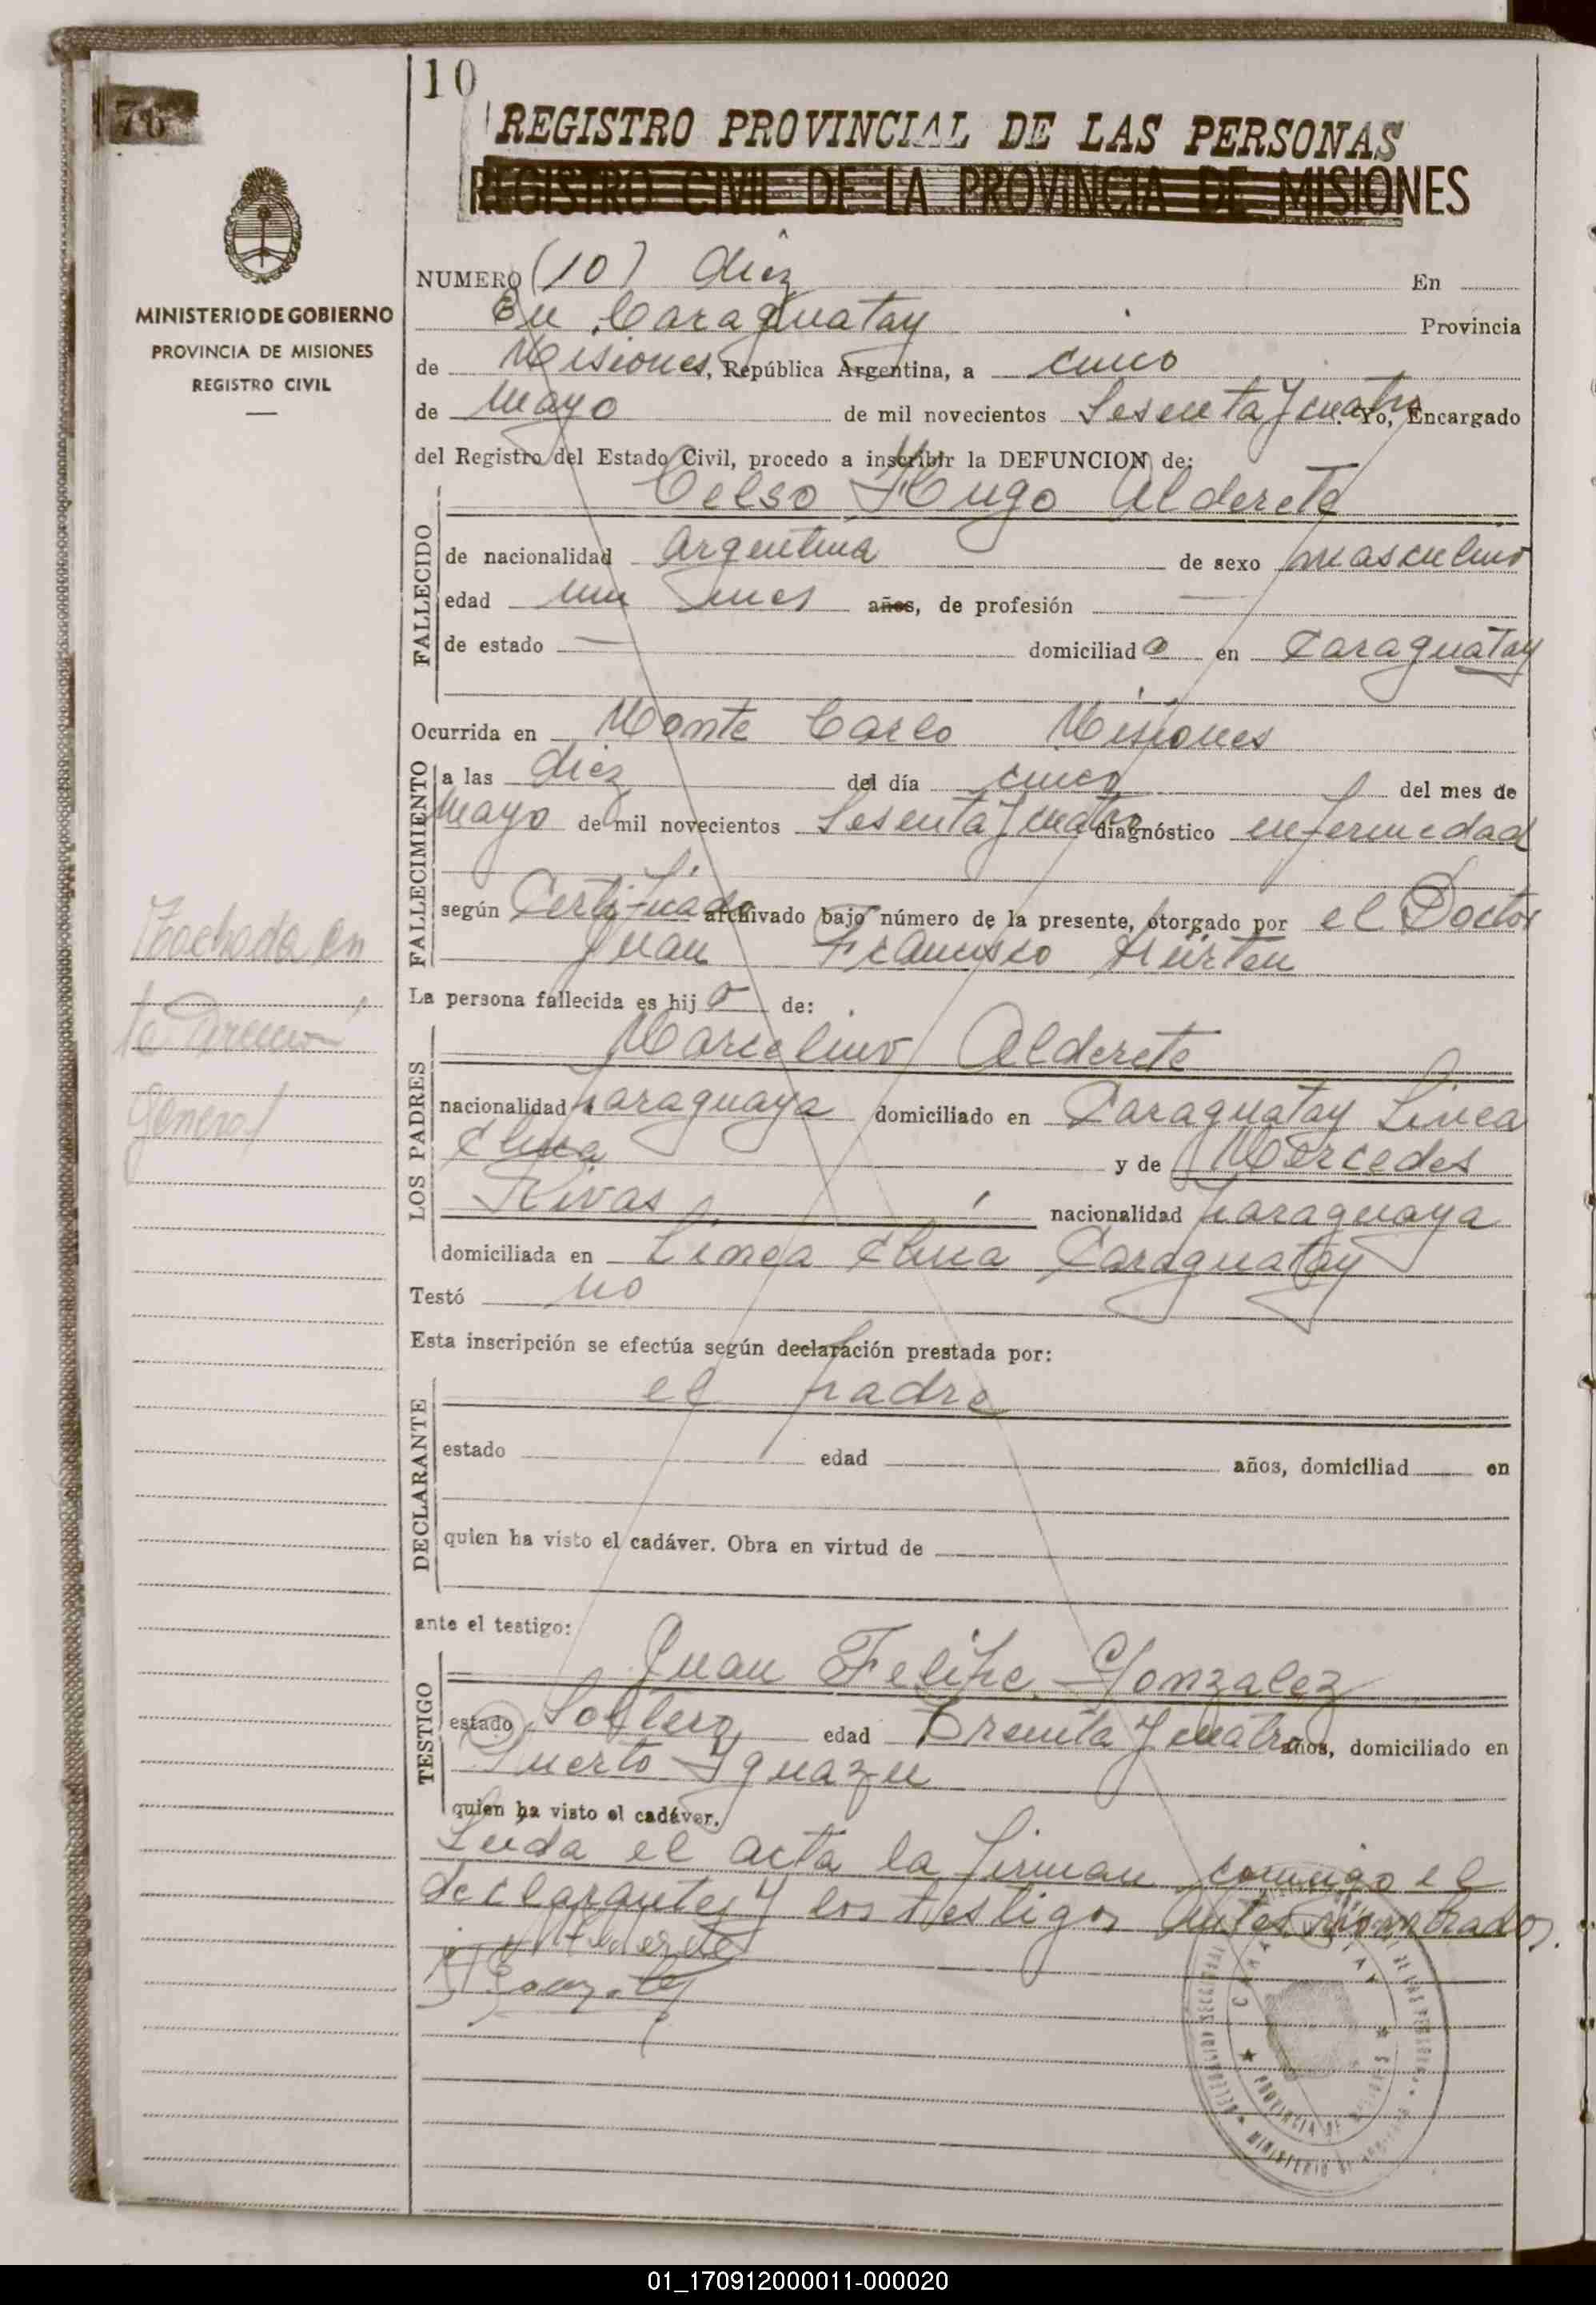 10
76
REGISTRO PROVINCIAL DE LAS PERSONAS
REGISTRO CIVIL DE LA PROVINCIA DE MISIONES
MINISTERIO DE GOBIERNO
PROVINCIA DE MISIONES
REGISTRO CIVIL
NUMERO (10) diez En
En Caraguatay Provincia
de Misiones, República Argentina, a cinco
de mayo de mil novecientos Sesenta y cuatro. Yo, Encargado
del Registro del Estado Civil, procedo a inscribir la DEFUNCION de:
Celso Hugo Alderete
FALLECIDO
de nacionalidad argentina de sexo masculino
edad un mes años, de profesión —
de estado — domiciliado en Caraguatay
Ocurrida en Monte Carlo Misiones
FALLECIMIENTO
a las diez del día cinco del mes de
mayo de mil novecientos Sesenta y cuatro diagnóstico enfermedad
según Certificado archivado bajo número de la presente, otorgado por el Doctor
Juan Francisco Hürten
La persona fallecida es hijo de:
LOS PADRES
Marcelino Alderete
nacionalidad paraguaya domiciliado en Caraguatay Linea
China y de Mercedes
Rivas nacionalidad paraguaya
domiciliada en Linea China Caraguatay
Testó no
Esta inscripción se efectúa según declaración prestada por:
DECLARANTE
el padre
estado edad años, domiciliad en
quien ha visto el cadáver. Obra en virtud de
ante el testigo:
TESTIGO
Juan Felipe Gonzalez
estado Soltero edad Treinta y cuatro años, domiciliado en
Puerto Yguazu
quien ha visto el cadáver.
Leida el acta la firman conmigo el
declarantes y los testigos antes nombrados.
Alderete
Gonzalez
Tachada en
la Dirección
General
PROVINCIA DE MISIONES
MINISTERIO DE
01_170912000011-000020